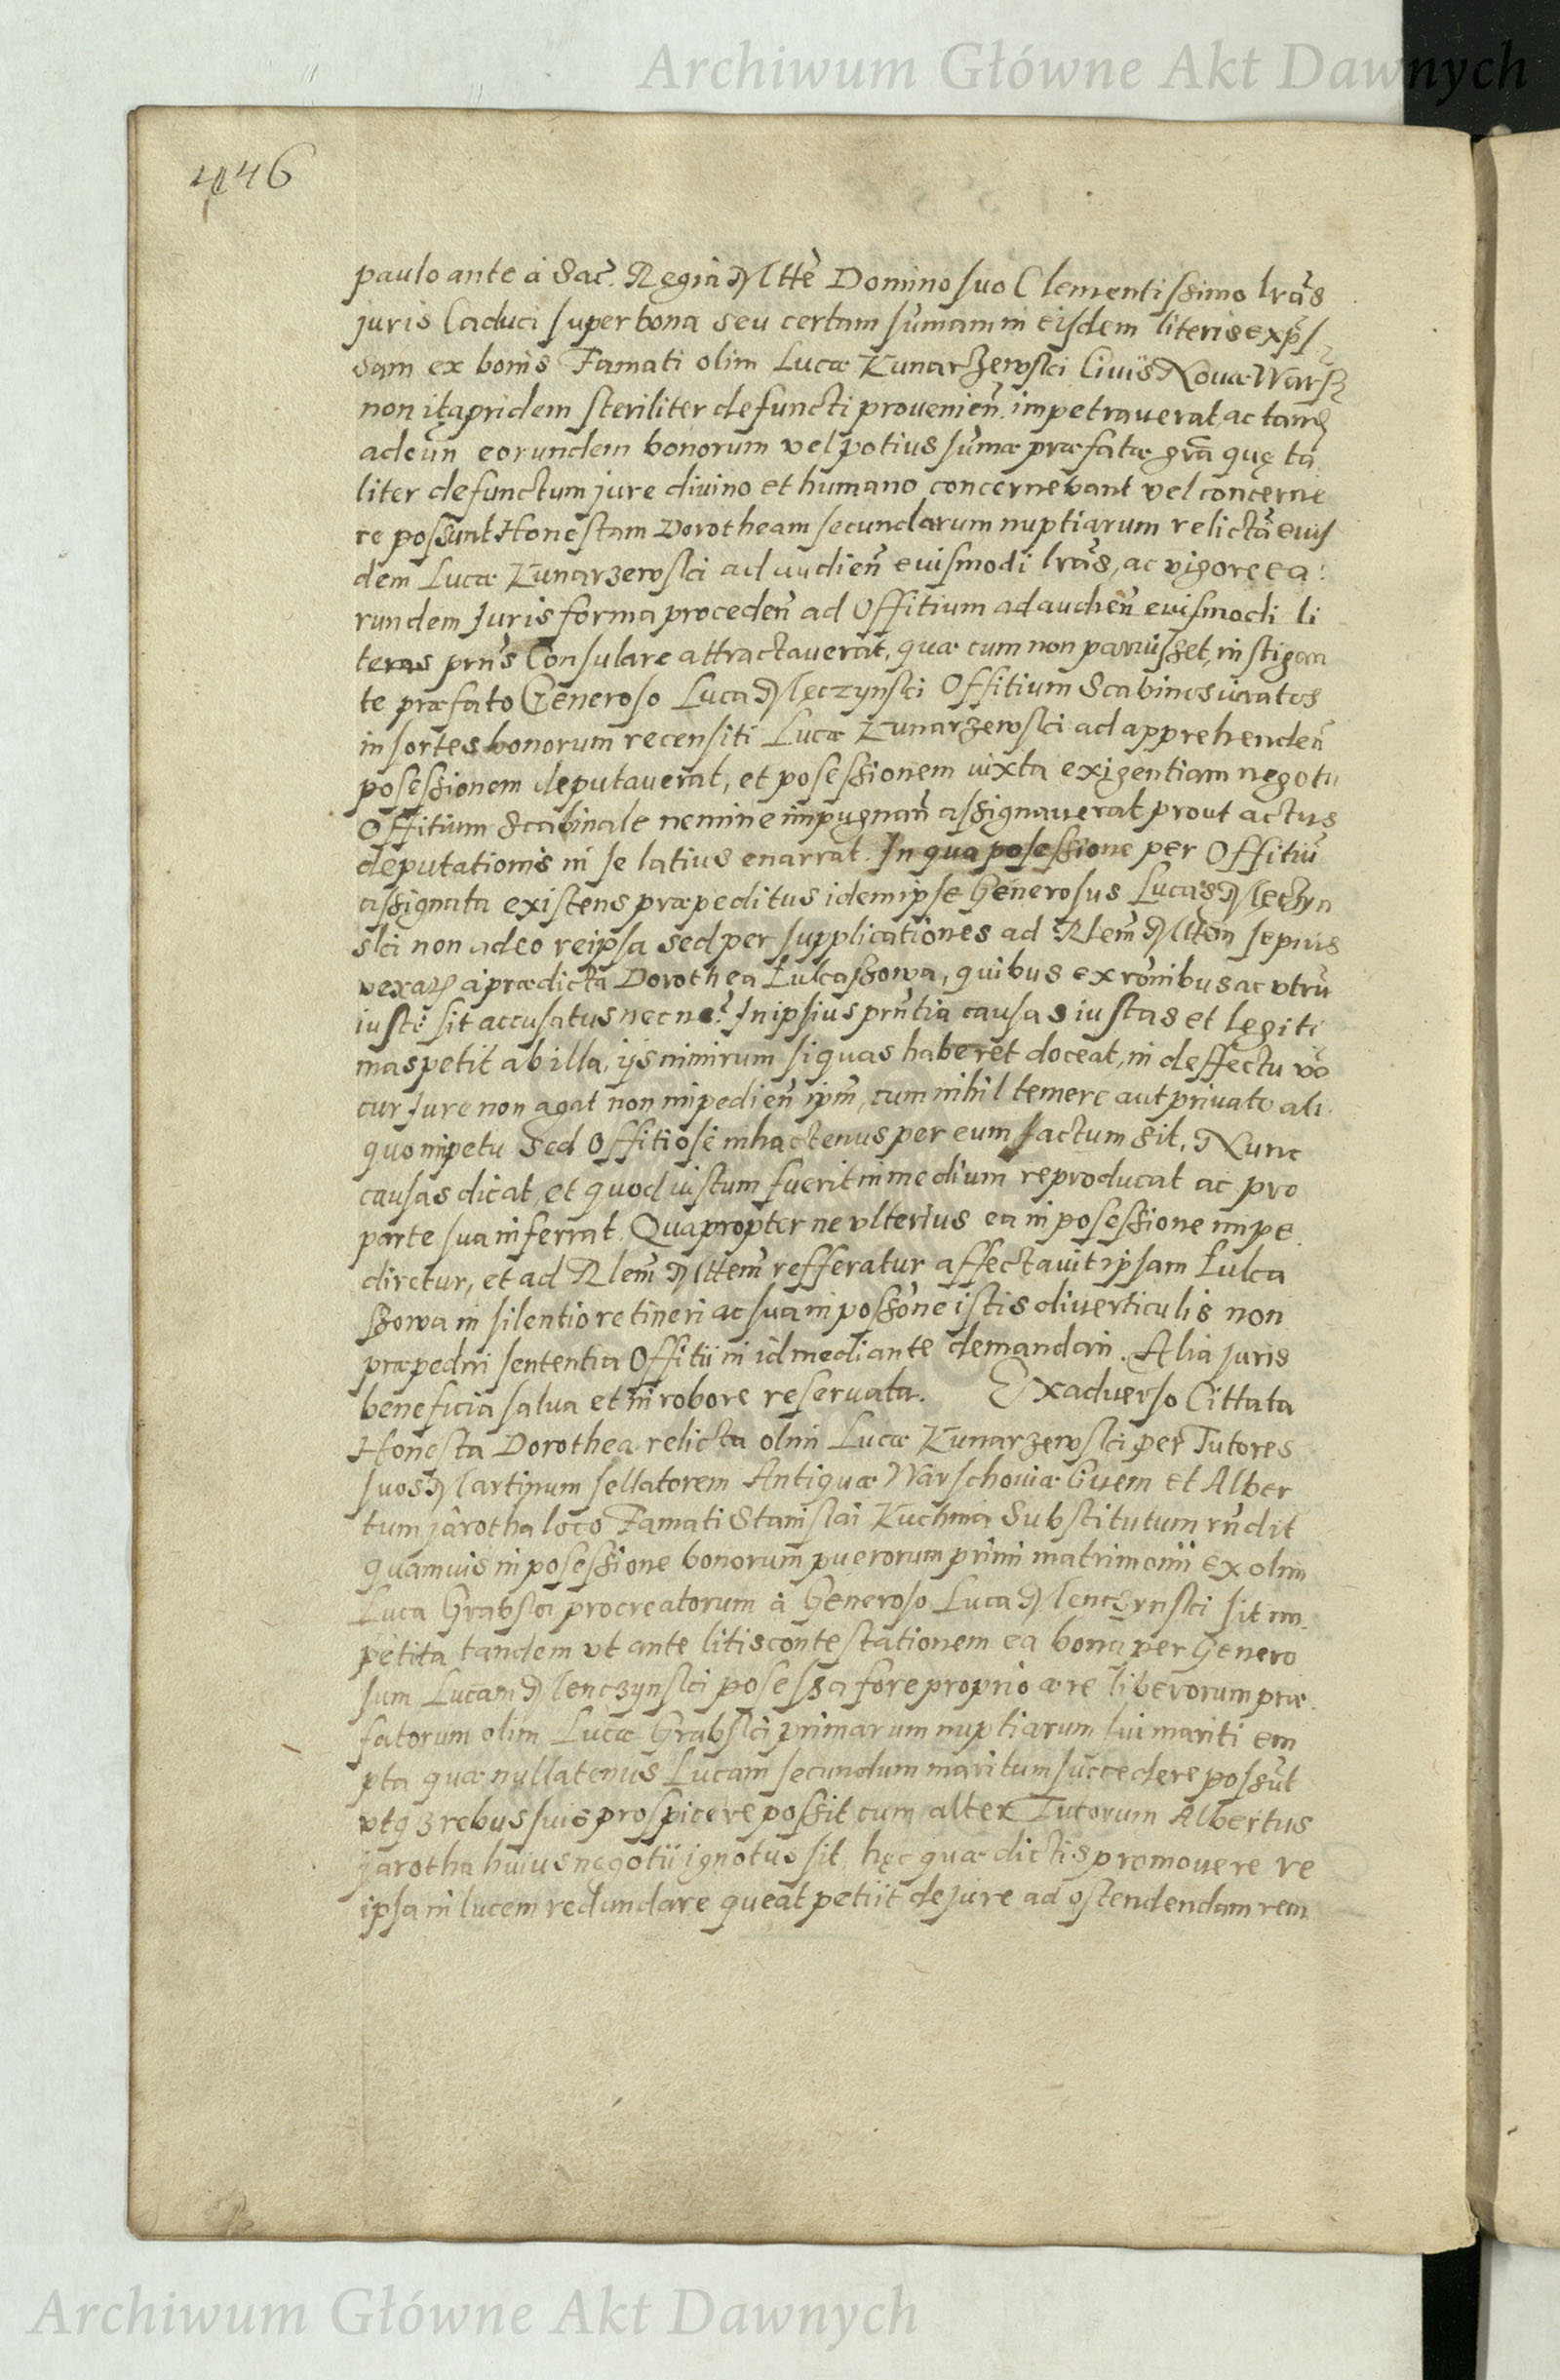 Archiwum Główne Akt Dawnych
446
paulo ante à Sac̃. Regia Mtte Domino suo Clementissimo lr̃as
juris Caduci super bona seu certam sum̃am in eisdem literis exp̃s
sam ex bonis Famati olim Lucæ Kunarzewski Civis Novæ Warsz
non ita pridem steriliter defuncti provenien̄. impetraverat, ac tand̃
adeun̄ eorundem bonorum vel potius sum̃æ præfatæ gr̃a quę ta
liter defunctum jure divino et humano concernebant vel concerne
re possunt Honestam Dorotheam secundarum nuptiarum relictã eius
dem Lucæ Kunarzewski ad audien̄ eiusmodi lr̃as, ac vigore ea:
rundem Juris forma proceden̄ ad Offitium ad auden̄ eiusmodi li
teras prn̄s Consulare attractaverat, quæ cum non paruisset, instigan
te præfato Generoso Luca Męczynski Offitium Scabinos iuratos
in sortes bonorum recensiti Lucæ Kunarzewski ad apprehenden̄
posessionem deputaverat, et posessionem iuxta exigentiam negotii
Offitium Scabinale nemine impugnan̄ assignaverat prout actus
deputationis in se latius enarrat. In qua posessione per Offitiũ
assignata existens præpeditus idem ipse Generosus Lucas Męczyn
ski non adeo reipsa sed per supplicationes ad Rlem̃ Mttem sepius
vexat9 à prædicta Dorothea Łukaszowa, quibus ex rõnibus ac utrũ
iuste sit accusatus nec ne? In ipsius prn̄tia causas iustas et legiti
mas petit ab illa, ijs nimirum si quas haberet doceat, in deffectu vō
cur Jure non agat non impedien̄ ipm̃, cum nihil temere aut privato ali
quo impetu Sed Offitiose inhactenus per eum factum sit, Nunc
causas dicat, et quod iustum fuerit in medium reproducat ac pro
parte sua inferrat. Quapropter ne ulterius ea in posessione impe
diretur, et ad Rlem̃ Mttem̃ refferatur affectavit ipsam Łuka
szowa in silentio retineri ac sua in possõne istis diverticulis non
præpediri sententia Offitii in id mediante demandari. Alia juris
beneficia salva et in robore reservata. Ex adverso Cittata
Honesta Dorothea relicta olim Lucæ Kunarzewski per Tutores
suos Martinum sellatorem Antiquæ Warschoviæ Civem et Alber
tum jarotha loco Famati Stanislai Kuchnia Substitutum rn̄dit
quamvis in posessione bonorum puerorum primi matrimonii ex olim
Luca Grabski procreatorum à Generoso Luca Męnczynski sit im
petita tandem ut ante litis contestationem ea bona per Genero
sum Lucam Menczynski posessa fore proprio ære liberorum præ
fatorum olim Lucæ Grabski primarum nuptiarum sui mariti em
pta quæ nullatenus Lucam secundum maritum succedere possũt
utq3 rebus suis prospicere possit cum alter Tutorum Albertus
jarotha huius negotii ignotus sit, hęc quæ dictis promovere re
ipsa in lucem redundare queat petiit de jure ad ostendendam rem
Archiwum Główne Akt Dawnych